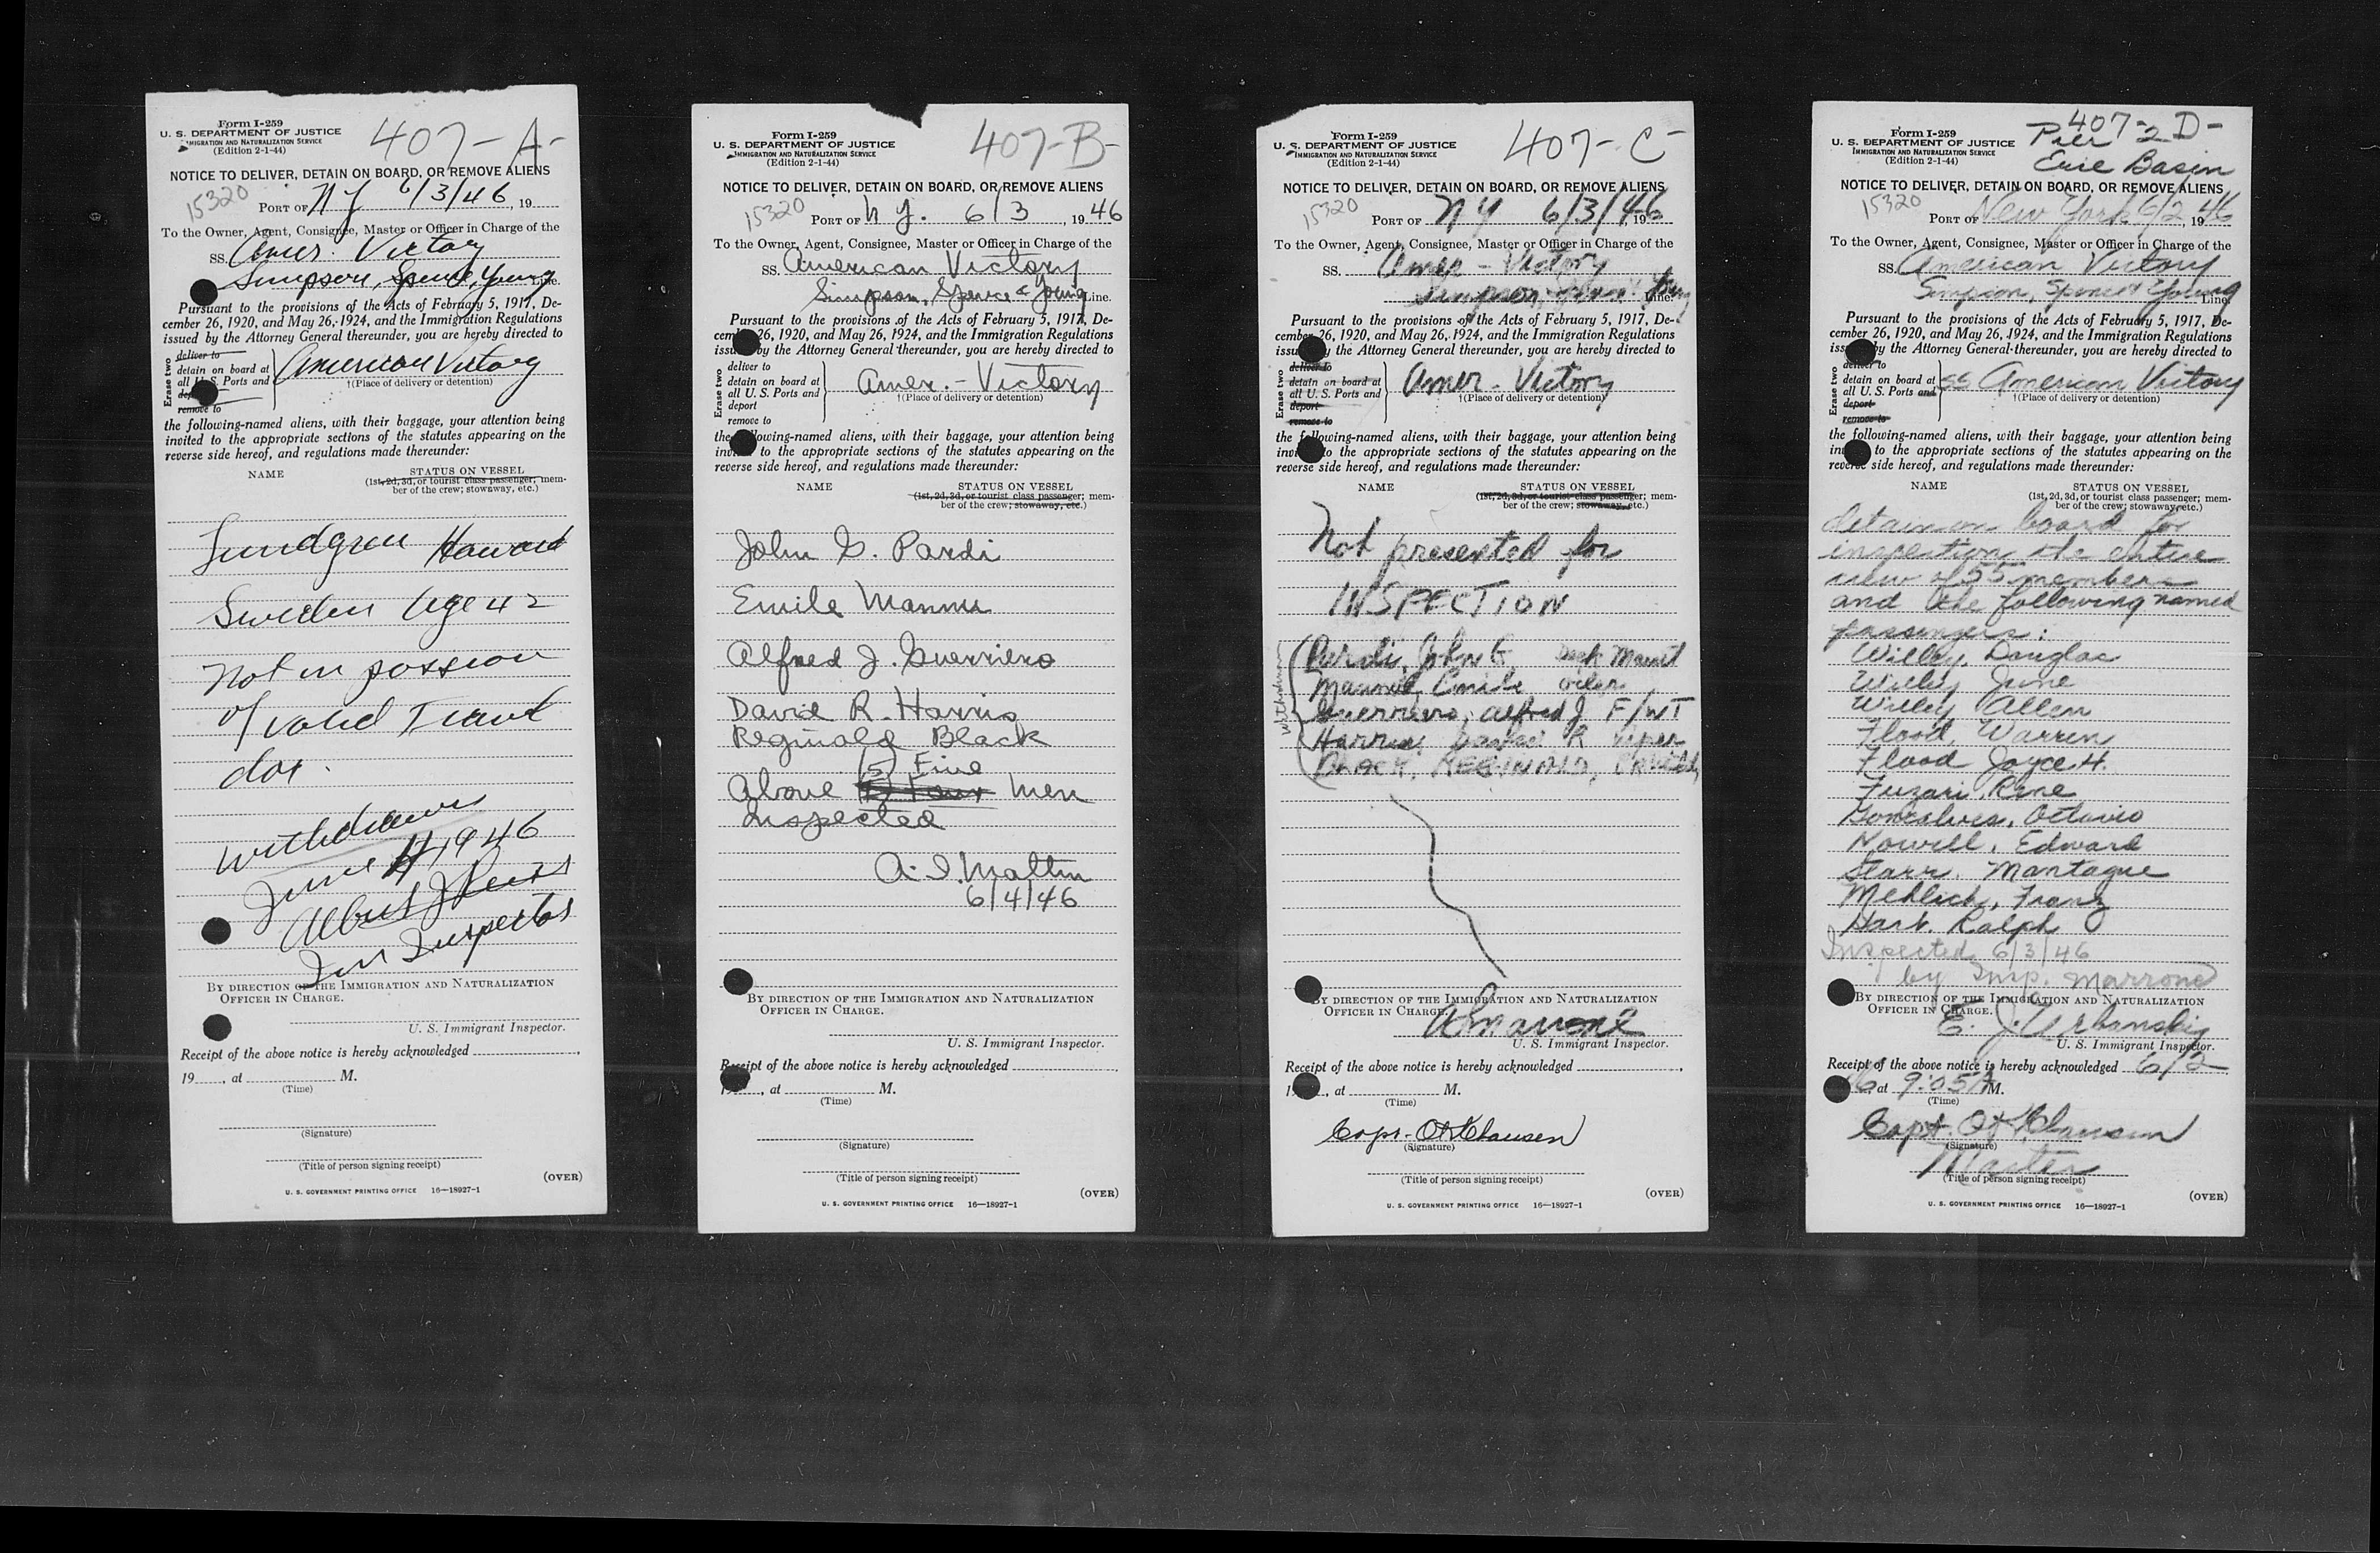 407-A-
Form I-259
U. S. DEPARTMENT OF JUSTICE
IMMIGRATION AND NATURALIZATION SERVICE
(Edition 2-1-44)
NOTICE TO DELIVER, DETAIN ON BOARD, OR REMOVE ALIENS
15320
PORT OF N Y 6/3/46, 19
To the Owner, Agent, Consignee, Master or Officer in Charge of the
SS. Amer. Victory
Simpson, Spence, Young Line.
Pursuant to the provisions of the Acts of February 5, 1917, De-
cember 26, 1920, and May 26, 1924, and the Immigration Regulations
issued by the Attorney General thereunder, you are hereby directed to
Erase two
deliver to
detain on board at
all U. S. Ports and
deport
remove to
American Victory
†(Place of delivery or detention)
the following-named aliens, with their baggage, your attention being
invited to the appropriate sections of the statutes appearing on the
reverse side hereof, and regulations made thereunder:
NAME STATUS ON VESSEL
(1st, 2d, 3d, or tourist class passenger; mem-
ber of the crew; stowaway, etc.)
Lundgren Howard
Sweden Age 42
Not in
of valid
Withdrawn
June 4, 1946
Albert J
Imm Inspector
BY DIRECTION OF THE IMMIGRATION AND NATURALIZATION
OFFICER IN CHARGE.
U. S. Immigrant Inspector.
Receipt of the above notice is hereby acknowledged
19, at M.
(Time)
(Signature)
(Title of person signing receipt)
(OVER)
U. S. GOVERNMENT PRINTING OFFICE 16—18927-1
407-B-
Form I-259
U. S. DEPARTMENT OF JUSTICE
IMMIGRATION AND NATURALIZATION SERVICE
(Edition 2-1-44)
NOTICE TO DELIVER, DETAIN ON BOARD, OR REMOVE ALIENS
15320
PORT OF N. Y. 6/3, 19 46
To the Owner, Agent, Consignee, Master or Officer in Charge of the
SS. American Victory
Simpson, Spence & Young Line.
Pursuant to the provisions of the Acts of February 5, 1917, De-
cember 26, 1920, and May 26, 1924, and the Immigration Regulations
issued by the Attorney General thereunder, you are hereby directed to
Erase two
deliver to
detain on board at
all U. S. Ports and
deport
remove to
Amer. - Victory
†(Place of delivery or detention)
the following-named aliens, with their baggage, your attention being
invited to the appropriate sections of the statutes appearing on the
reverse side hereof, and regulations made thereunder:
NAME STATUS ON VESSEL
(1st, 2d, 3d, or tourist class passenger; mem-
ber of the crew; stowaway, etc.)
John G. Pardi
Emile Mannu
Alfred J. Guerriero
David R. Harris
Reginald Black
(5) Five
Above Four men
Inspected
A. I. Maltin
6/4/46
BY DIRECTION OF THE IMMIGRATION AND NATURALIZATION
OFFICER IN CHARGE.
U. S. Immigrant Inspector.
Receipt of the above notice is hereby acknowledged
19, at M.
(Time)
(Signature)
(Title of person signing receipt)
(OVER)
U. S. GOVERNMENT PRINTING OFFICE 16—18927-1
407-C-
Form I-259
U. S. DEPARTMENT OF JUSTICE
IMMIGRATION AND NATURALIZATION SERVICE
(Edition 2-1-44)
NOTICE TO DELIVER, DETAIN ON BOARD, OR REMOVE ALIENS
15320
PORT OF N Y 6/3/46, 19
To the Owner, Agent, Consignee, Master or Officer in Charge of the
SS. Amer - Victory
Simpson, Young Line.
Pursuant to the provisions of the Acts of February 5, 1917, De-
cember 26, 1920, and May 26, 1924, and the Immigration Regulations
issued by the Attorney General thereunder, you are hereby directed to
Erase two
deliver to
detain on board at
all U. S. Ports and
deport
remove to
Amer - Victory
†(Place of delivery or detention)
the following-named aliens, with their baggage, your attention being
invited to the appropriate sections of the statutes appearing on the
reverse side hereof, and regulations made thereunder:
NAME STATUS ON VESSEL
(1st, 2d, 3d, or tourist class passenger; mem-
ber of the crew; stowaway, etc.)
Not presented for
INSPECTION
Withdrawn
Pardi, John G. Deck Maint
Emile oiler
Guerriero, Alfred J F/WT
Harris, David R wiper
BLACK, REGINALD,
A Marrone
BY DIRECTION OF THE IMMIGRATION AND NATURALIZATION
OFFICER IN CHARGE.
U. S. Immigrant Inspector.
Receipt of the above notice is hereby acknowledged
19, at M.
(Time)
Capt. O H Clausen
(Signature)
(Title of person signing receipt)
(OVER)
U. S. GOVERNMENT PRINTING OFFICE 16—18927-1
407-D-
Pier 2
Erie Basin
Form I-259
U. S. DEPARTMENT OF JUSTICE
IMMIGRATION AND NATURALIZATION SERVICE
(Edition 2-1-44)
NOTICE TO DELIVER, DETAIN ON BOARD, OR REMOVE ALIENS
15320
PORT OF New York 6/2, 19 46
To the Owner, Agent, Consignee, Master or Officer in Charge of the
SS. American Victory
Simpson, Spence & Young Line.
Pursuant to the provisions of the Acts of February 5, 1917, De-
cember 26, 1920, and May 26, 1924, and the Immigration Regulations
issued by the Attorney General thereunder, you are hereby directed to
Erase two
deliver to
detain on board at
all U. S. Ports and
deport
remove to
SS American Victory
†(Place of delivery or detention)
the following-named aliens, with their baggage, your attention being
invited to the appropriate sections of the statutes appearing on the
reverse side hereof, and regulations made thereunder:
NAME STATUS ON VESSEL
(1st, 2d, 3d, or tourist class passenger; mem-
ber of the crew; stowaway, etc.)
detain on board for
inspection the entire
crew of 55 members
and the following named
passengers:
Willey, Douglas
Willey June
Willey Allen
Flood, Warren
Flood Joyce H.
Fuzari, Rene
Goncalves, Octavio
Nowill, Edward
Starr, Montague
Mehlich, Franz
Hart, Ralph
Inspected 6/3/46
by Insp. Marrone
BY DIRECTION OF THE IMMIGRATION AND NATURALIZATION
OFFICER IN CHARGE.
E. J. Urbanskiy
U. S. Immigrant Inspector.
Receipt of the above notice is hereby acknowledged 6/2
46 at 9:05 A M.
(Time)
Capt. O H Clausen
(Signature)
Master
(Title of person signing receipt)
(OVER)
U. S. GOVERNMENT PRINTING OFFICE 16—18927-1